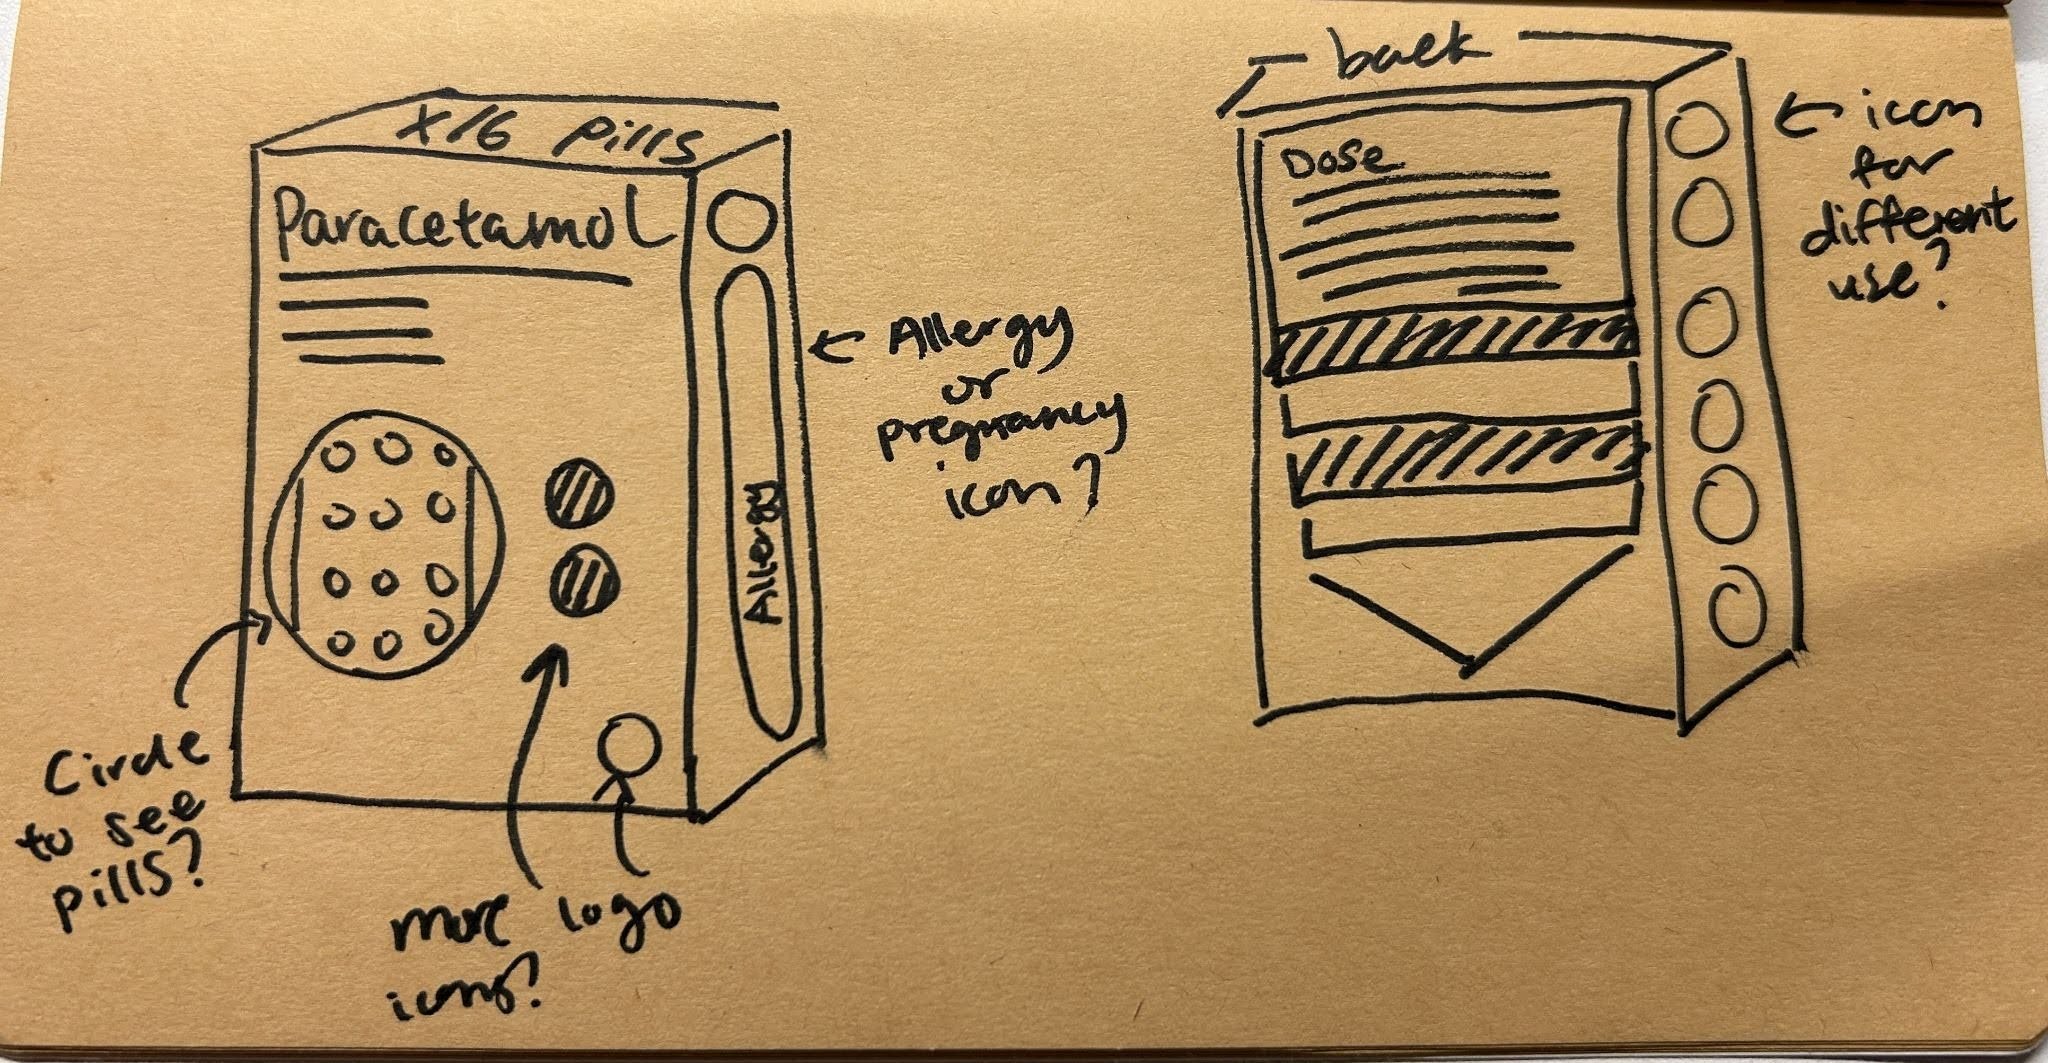 x16 pills
Paracetamol
Allergy
← Allergy
or
pregnancy
icon?
Circle
to see
pills?
more
icons?
logo
back
Dose
← icon
for
different
use?